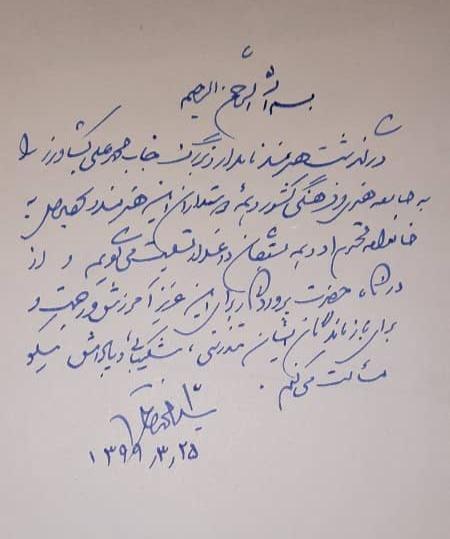 بسم الله الرحمن الرحیم
درگذشت هنرمند نامدار و بزرگ جناب محمدعلی کشاورز را
به جامعه هنری و فرهنگی کشور و همه دوستداران این هنرمند و
خانواده محترم او و به همه داغدار تسلیت می‌گویم و از
درگاه حضرت پروردگار برای این عزیز آمرزش و رحمت و
برای بازماندگان ایشان تندرستی، شکیبایی و پاداش
مسئلت می‌کنم.
سید محمد خاتمی
۱۳۹۹،۳،۲۵